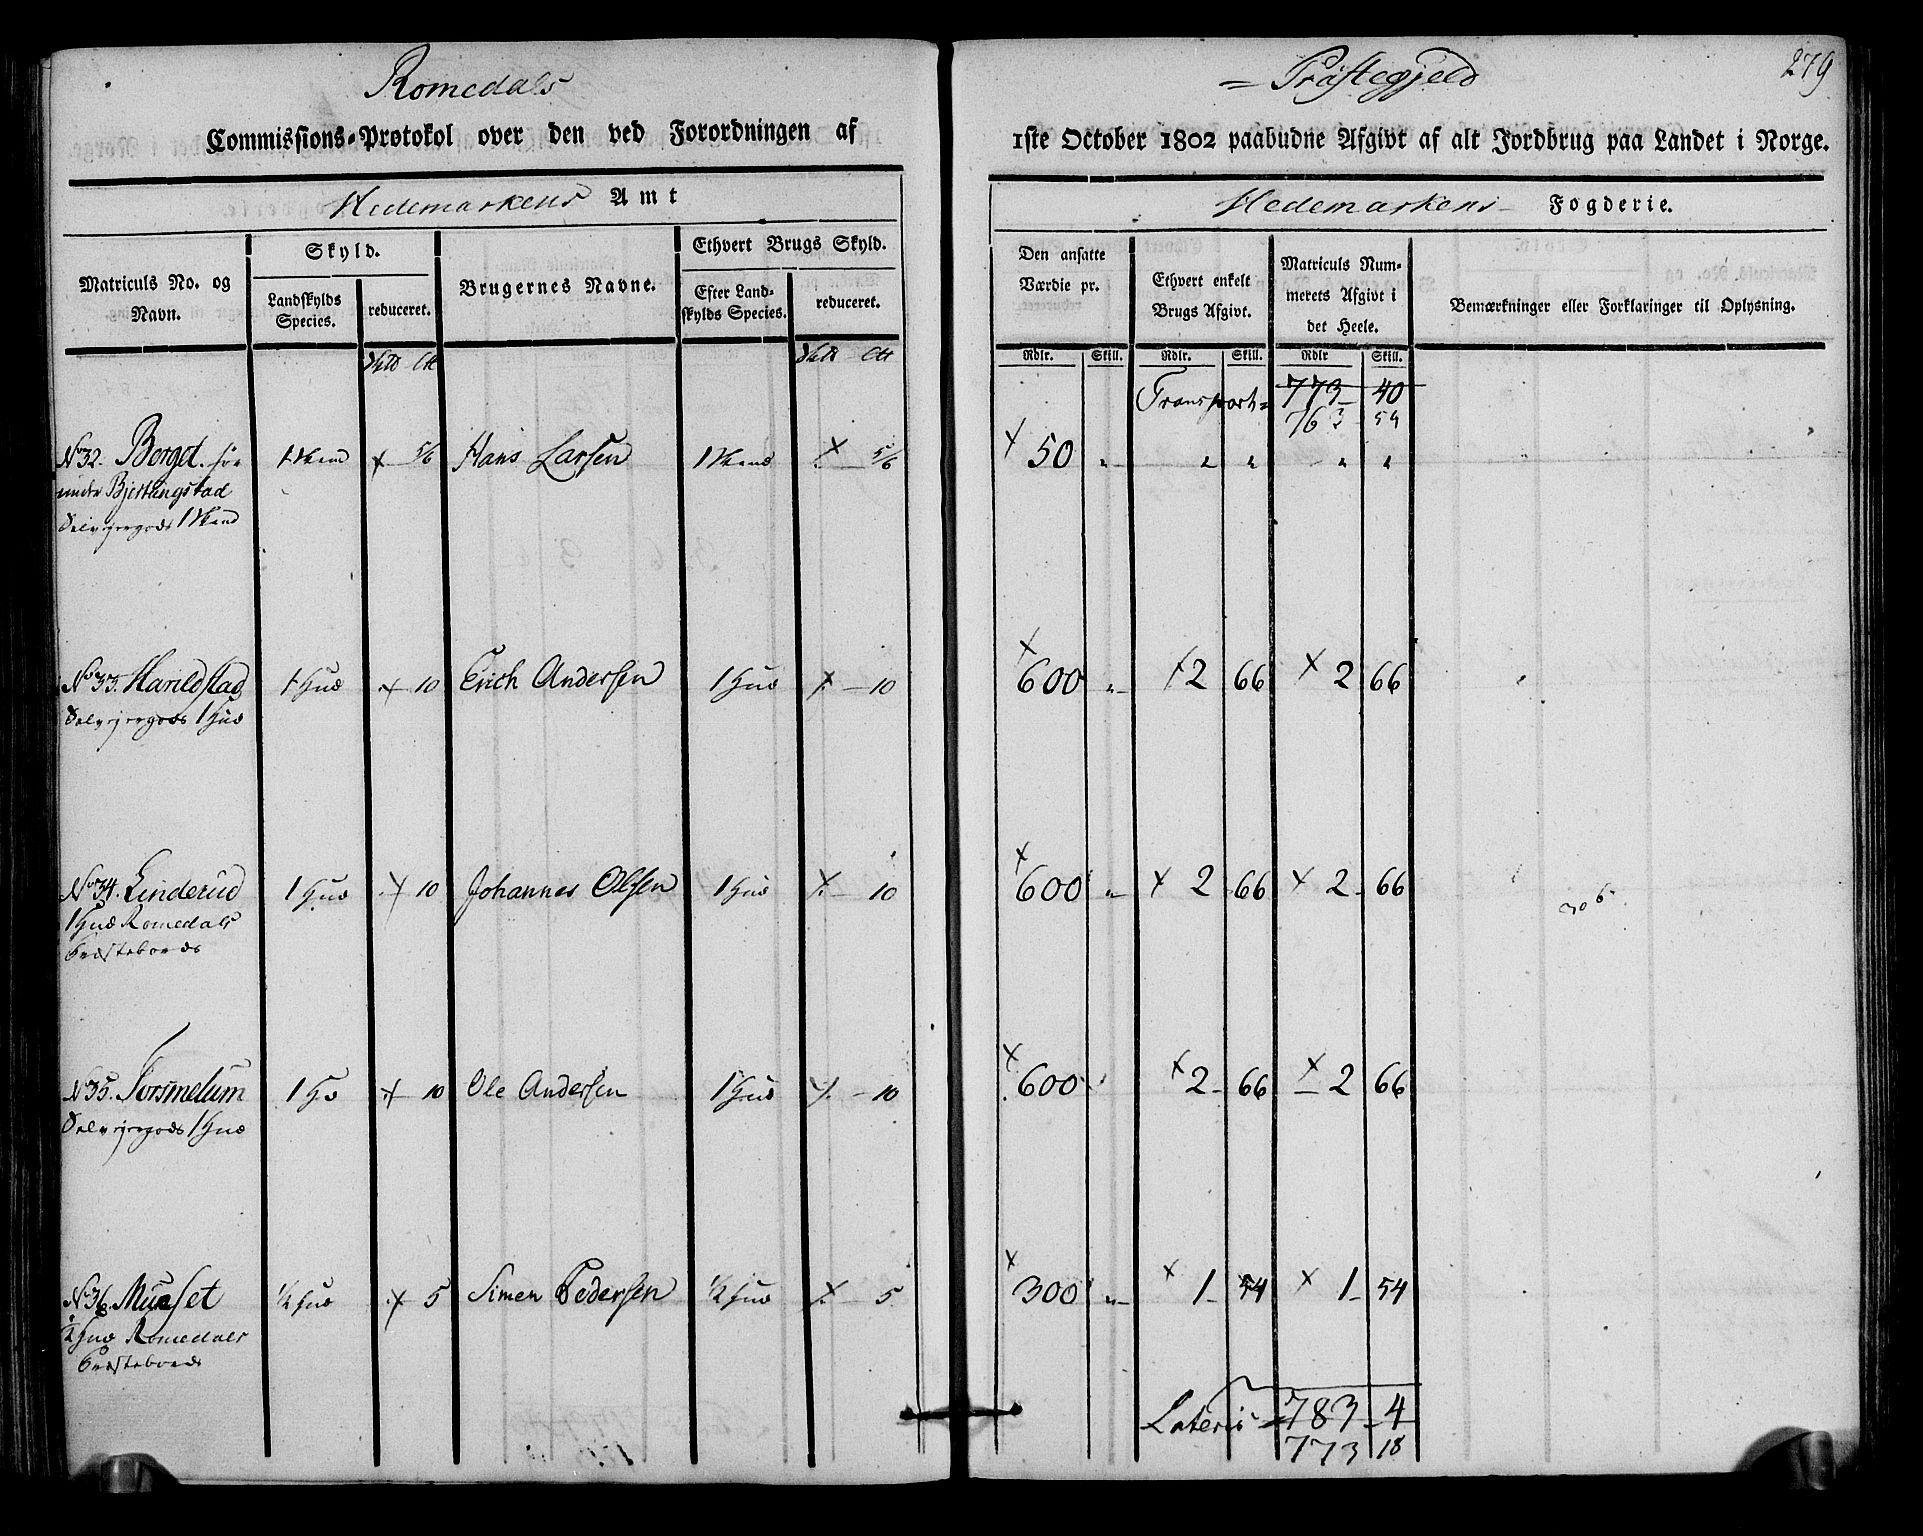 Romedals
Commissions-Protokol over den ved Forordningen af
Hedemarkens Amt
Matriculs No. og Navn.
Skyld.
Landskylds Species.
reduceret.
Brugernes Navne.
Ethvert Brugs Skyld.
Efter Landskylds Species.
reduceret.
No 32. Berget 5/6 Hans Larsen 5/6
under Bjertungstad
Selvejergods
No 33. Harildstad 1 Hud x 10 Erich Andersen 1 Hud x 10
Selvejergods 1 Hud
No 34. Linderud 1 Hud x 10 Johannes Olsen 1 Hud x 10
1 Hud Romedals
Præstebords
No 35. Torsmelum 1 Hd x 10 Ole Andersen 1 Hud x 10
Selvejergods 1 Hud
No 36. Musset ½ Hud x 5 Simen Pedersen ½ Hud x 5
½ Hud Romedals
Præstebords
= Præstegjeld
279
1ste October 1802 paabudne Afgivt af alt Jordbrug paa Landet i Norge.
Hedemarkens Fogderie.
Den ansatte Værdie pr.
Ethvert enkelt Brugs Afgivt.
Matriculs Nummerets Afgivt i det Heele.
Bemærkninger eller Forklaringer til Oplysning.
Rdlr. Skill. Rdlr. Skill. Rdlr Skill.
Transport = 773 40
763 54
x 50 " " " " "
x 600 " x 2 66 x 2 66
x 600 " x 2 66 x 2 66
x 600 x 2 66 x 2 66
x 300 " x 1 54 x 1 54
Lateris = 783 4
773 18